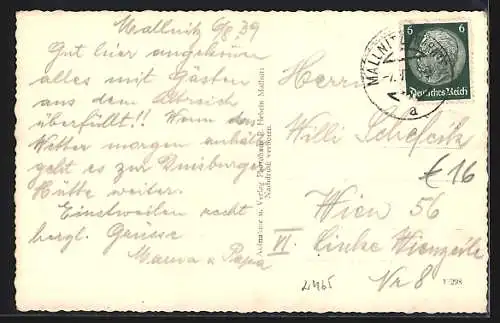 Mallnitz 6/8. 39
Gut hier angekommen
alles mit Gästen
aus dem Altreich
überfüllt!! Wenn das
Wetter morgen anhält
geht es zur Duisburger
Hütte weiter.
Einstweilen recht
herzl. Grüsse
Mama u Papa
Nachdruck verboten.
MALLNITZ
a
6 6
Deutsches Reich
Herrn
Willi
€ 16
Wien 56
VI. Linke Wienzeile
Nr 8